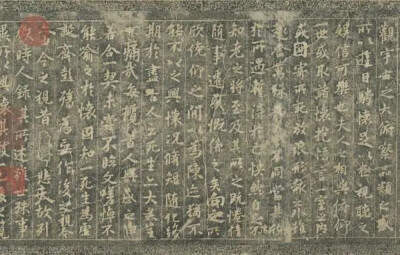 觀宇宙之大俯察品類之盛
所以遊目騁懷足以極視聽之
娛信可樂也夫人之相與俯仰
一世或取諸懷抱悟言一室之內
或因寄所託放浪形骸之外雖
趣舍萬殊靜躁不同當其欣
於所遇暫得於己快然自足不
知老之將至及其所之既惓情
隨事遷感慨係之矣向之所
欣俛仰之閒以為陳迹猶不
能不以之興懷況脩短隨化終
期於盡古人云死生亦大矣豈
不痛哉每攬昔人興感之由
若合一契未嘗不臨文嗟悼不
能喻之於懷固知一死生為虛
誕齊彭殤為妄作後之視今
亦由今之視昔悲夫故列
敘時人錄其所述雖世殊事
異所以興懷其致